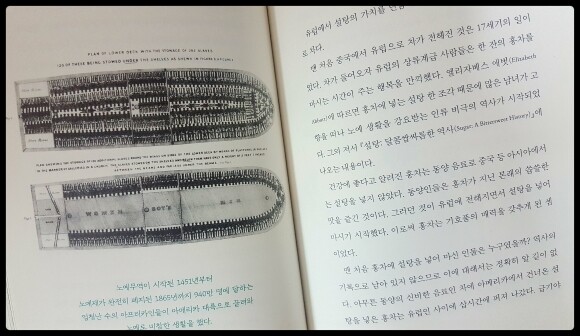 PLAN OF LOWER DECK WITH THE STOWAGE OF 292 SLAVES
130 OF THESE BEING STOWED UNDER THE SHELVES AS SHEWN IN FIGURE
WOMEN
BOYS
MEN
노예무역이 시작된 1451년부터
노예제가 완전히 폐지된 1865년까지 940만 명에 달하는
엄청난 수의 아프리카인들이 아메리카 대륙으로 끌려와
노예로 비참한 생활을 했다.
유럽에서 설탕의 가치를
로 되다.
맨 처음 중국에서 유럽으로 차가 전해진 것은 17세기의 일이
었다. 차가 들어오자 유럽의 상류계급 사람들은 한 잔의 홍차를
마시는 시간이 주는 행복을 만끽했다. 엘리자베스 애벗(Elizabeth
Abbott)에 따르면 홍차에 넣는 설탕 한 조각 때문에 많은 남녀가 고
향을 떠나 노예 생활을 강요받는 인류 비극의 역사가 시작되었
다. 그의 저서 『설탕: 달콤쌉싸름한 역사(Sugar: A Bittersweet History)』에
나오는 내용이다.
건강에 좋다고 알려진 홍차는 동양 음료로 중국 등 아시아에서
는 설탕을 넣지 않았다. 동양인들은 홍차가 지닌 본래의 씁쓸한
맛을 즐긴 것이다. 그러던 것이 유럽에 전해지면서 설탕을 넣어
마시기 시작했다. 이로써 홍차는 기호품의 매력을 갖추게 된 셈
이었다.
맨 처음 홍차에 설탕을 넣어 마신 인물은 누구였을까? 역사의
기록으로 남아 있지 않으므로 이에 대해서는 정확히 알 길이 없
다. 아무튼 동양의 신비한 음료인 차에 아메리카에서 건너온 설
탕을 넣은 홍차는 유럽인 사이에 삽시간에 퍼져 나갔다. 급기야